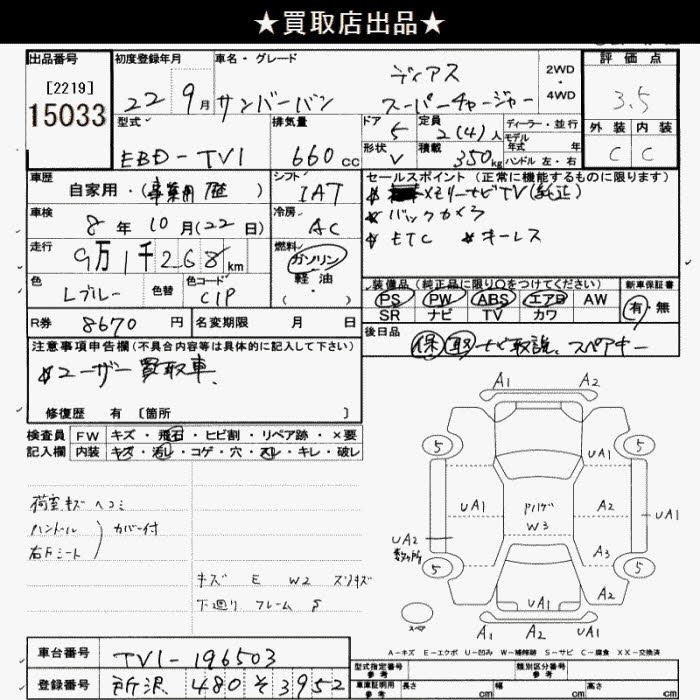 ★買取店出品★
出品番号 初度登録年月 車名・グレード 2WD・4WD 評価点
[2219]
15033
22 9月 サンバーバン ディアス
スーパーチャージャー
3.5
型式 排気量 ドア 定員 ディーラー・並行 外装 内装
EBD-TV1 660cc 5 2(4)人 モデル年式 年 C C
形状 積載 ハンドル 左・右
V 350kg
車歴 シフト セールスポイント(正常に機能するものに限ります)
自家用・(事業用 歴) IAT
メモリーナビTV(純正)
車検 冷房 バックカメラ
8年10月(22日) AC
ETC キーレス
走行 燃料
9万1千268km ガソリン
軽油
( ・ )
色 色替 色コード 装備品(純正品に限り○をつけてください) 新車保証書
Lブルー C1P PS PW ABS エアB AW 有・無
SR ナビ TV カワ
R券 8670円 名変期限 月 日 後日品
保 取 ナビ取説、スペアキー
注意事項申告欄(不具合内容等は具体的に記入して下さい)
ユーザー買取車
修復歴 有 〔箇所 〕
検査員 FW キズ・飛石・ヒビ割・リペア跡・×要
記入欄 内装 キズ・汚レ・コゲ・穴・スレ・キレ・破レ
荷室キズ ヘコミ
ハンドル カバー付
右Fシート
キズ E W2 スリキズ
下廻り フレーム S
A1 A2
5 5
UA1
UA1 A2 UA1
W3
UA2
A3
5 5
UA1
スペア A1 A2 UA1
A-キズ E-エクボ U-凹み W-補修跡 S-サビ C-腐食 XX-交換済
車台番号 TV1-196503
登録番号 所沢 480 そ 3952
型式指定番号 参考 類別区分番号 参考
車庫証明用 参考 長さ cm 幅 cm 高さ cm